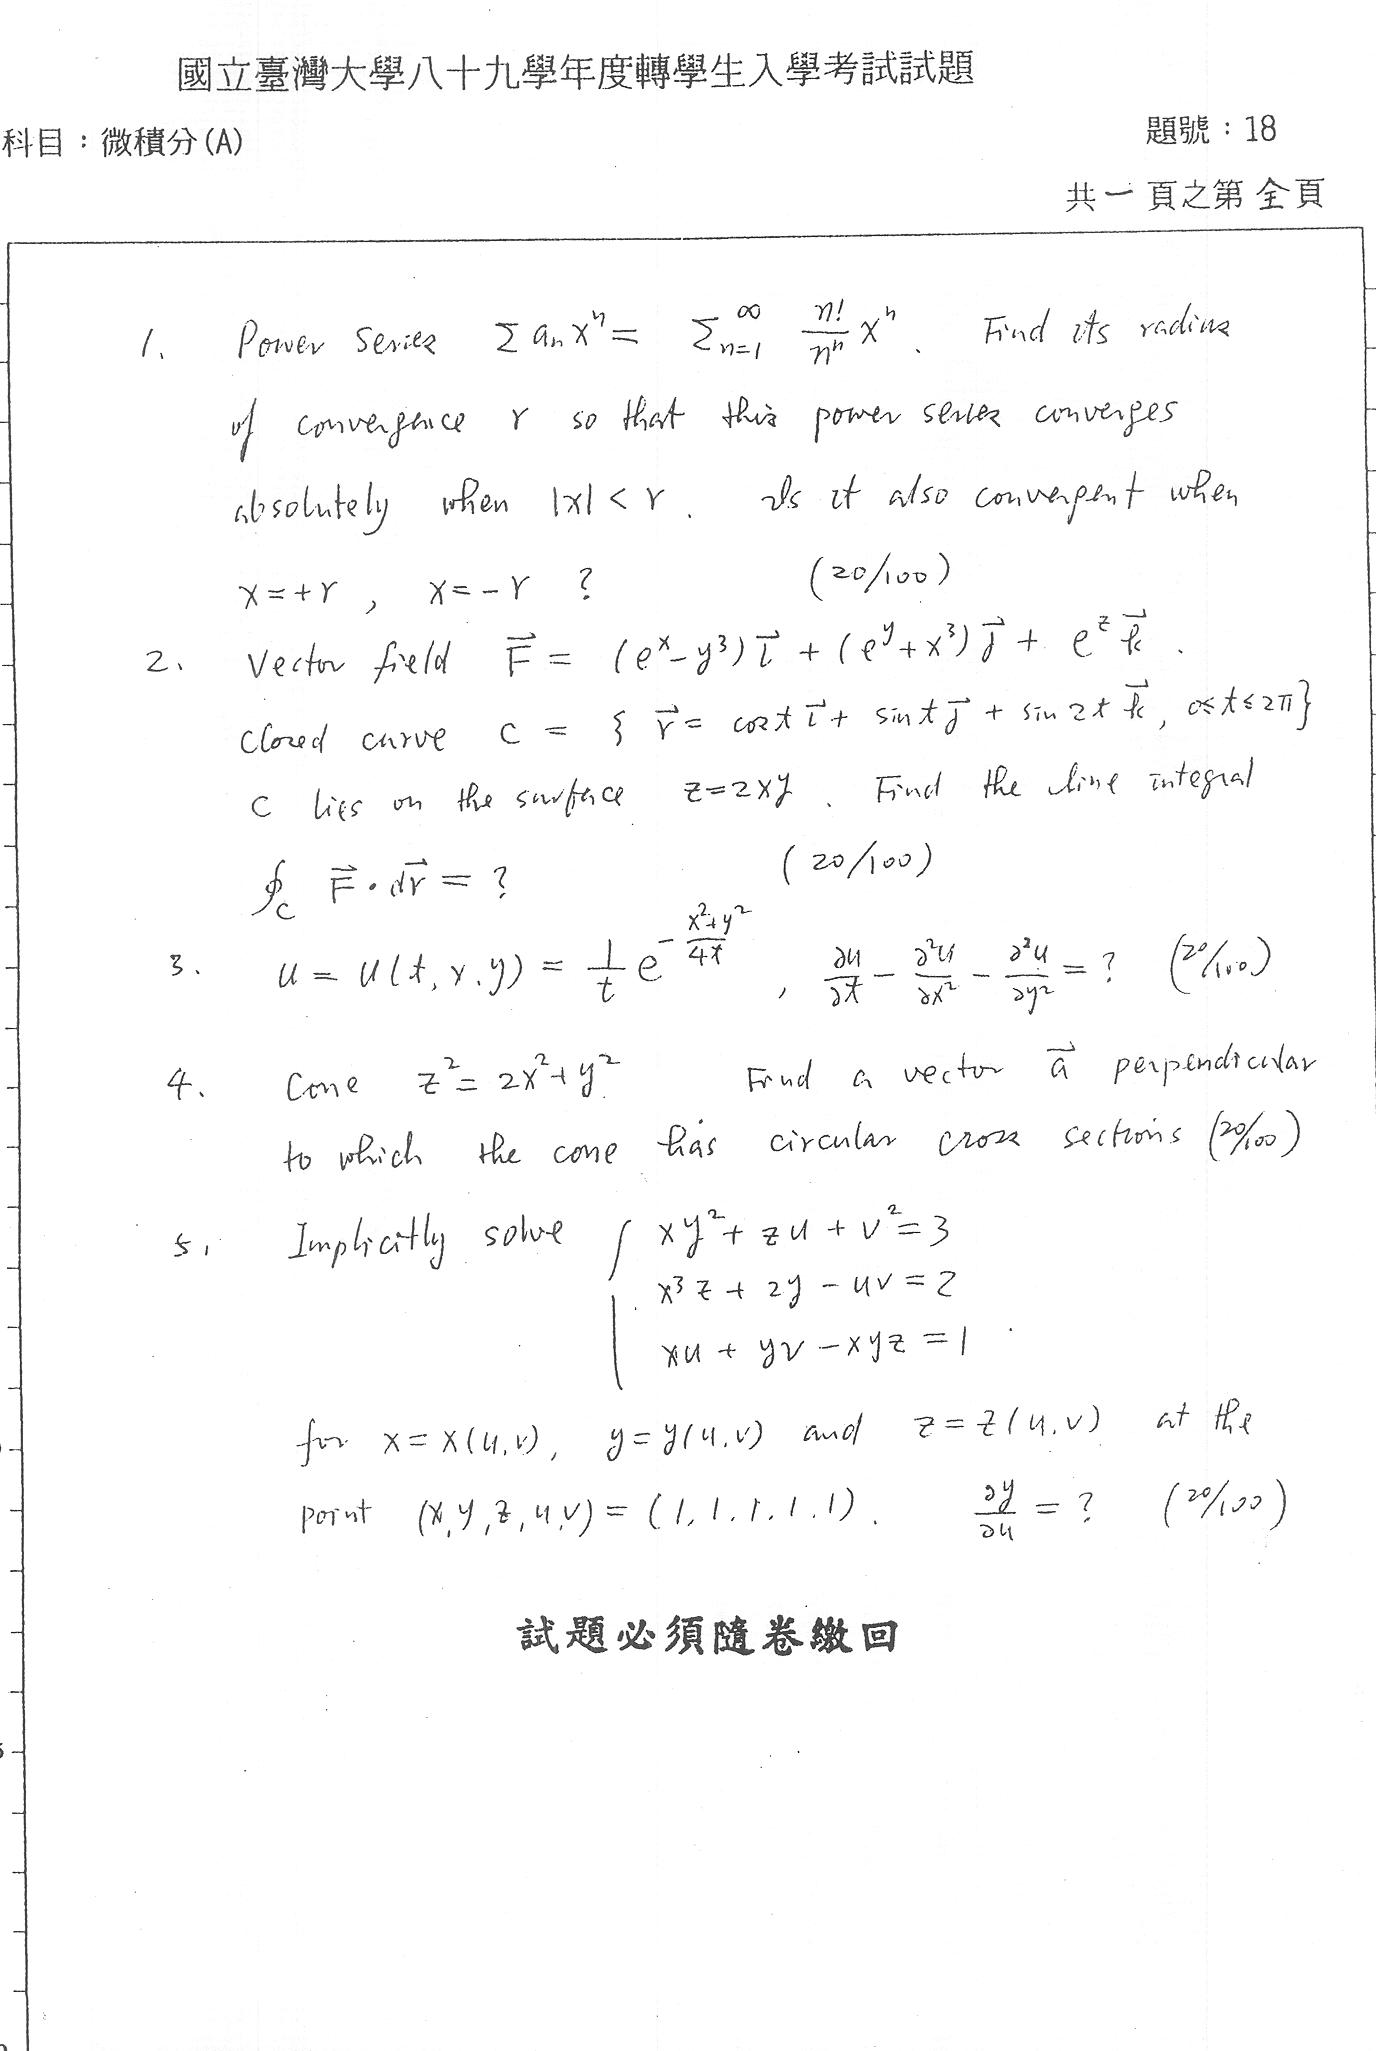 國立臺灣大學八十九學年度轉學生入學考試試題
科目：微積分(A)
題號：18
共一頁之第全頁
1. Power Series Σ aₙxⁿ = Σₙ₌₁^∞ n!/nⁿ xⁿ. Find its radius
of convergence r so that this power series converges
absolutely when |x| < r. Is it also convergent when
x = +r, x = -r ? (20/100)
2. Vector field F⃗ = (eˣ - y³) i⃗ + (eʸ + x³) j⃗ + eᶻ k⃗.
closed curve C = { r⃗ = cos t i⃗ + sin t j⃗ + sin 2t k⃗, 0 ≤ t ≤ 2π }
C lies on the surface z = 2xy. Find the line integral
∮_C F⃗ • dr⃗ = ? (20/100)
3. u = u(t, x, y) = 1/t e^(-(x²+y²)/4t), ∂u/∂t - ∂²u/∂x² - ∂²u/∂y² = ? (20/100)
4. Cone z² = 2x² + y² Find a vector a⃗ perpendicular
to which the cone has circular cross sections (20/100)
5. Implicitly solve { xy² + zu + v² = 3
x³z + 2y - uv = 2
xu + yv - xyz = 1.
for x = x(u, v), y = y(u, v) and z = z(u, v) at the
point (x, y, z, u, v) = (1, 1, 1, 1, 1). ∂y/∂u = ? (20/100)
試題必須隨卷繳回